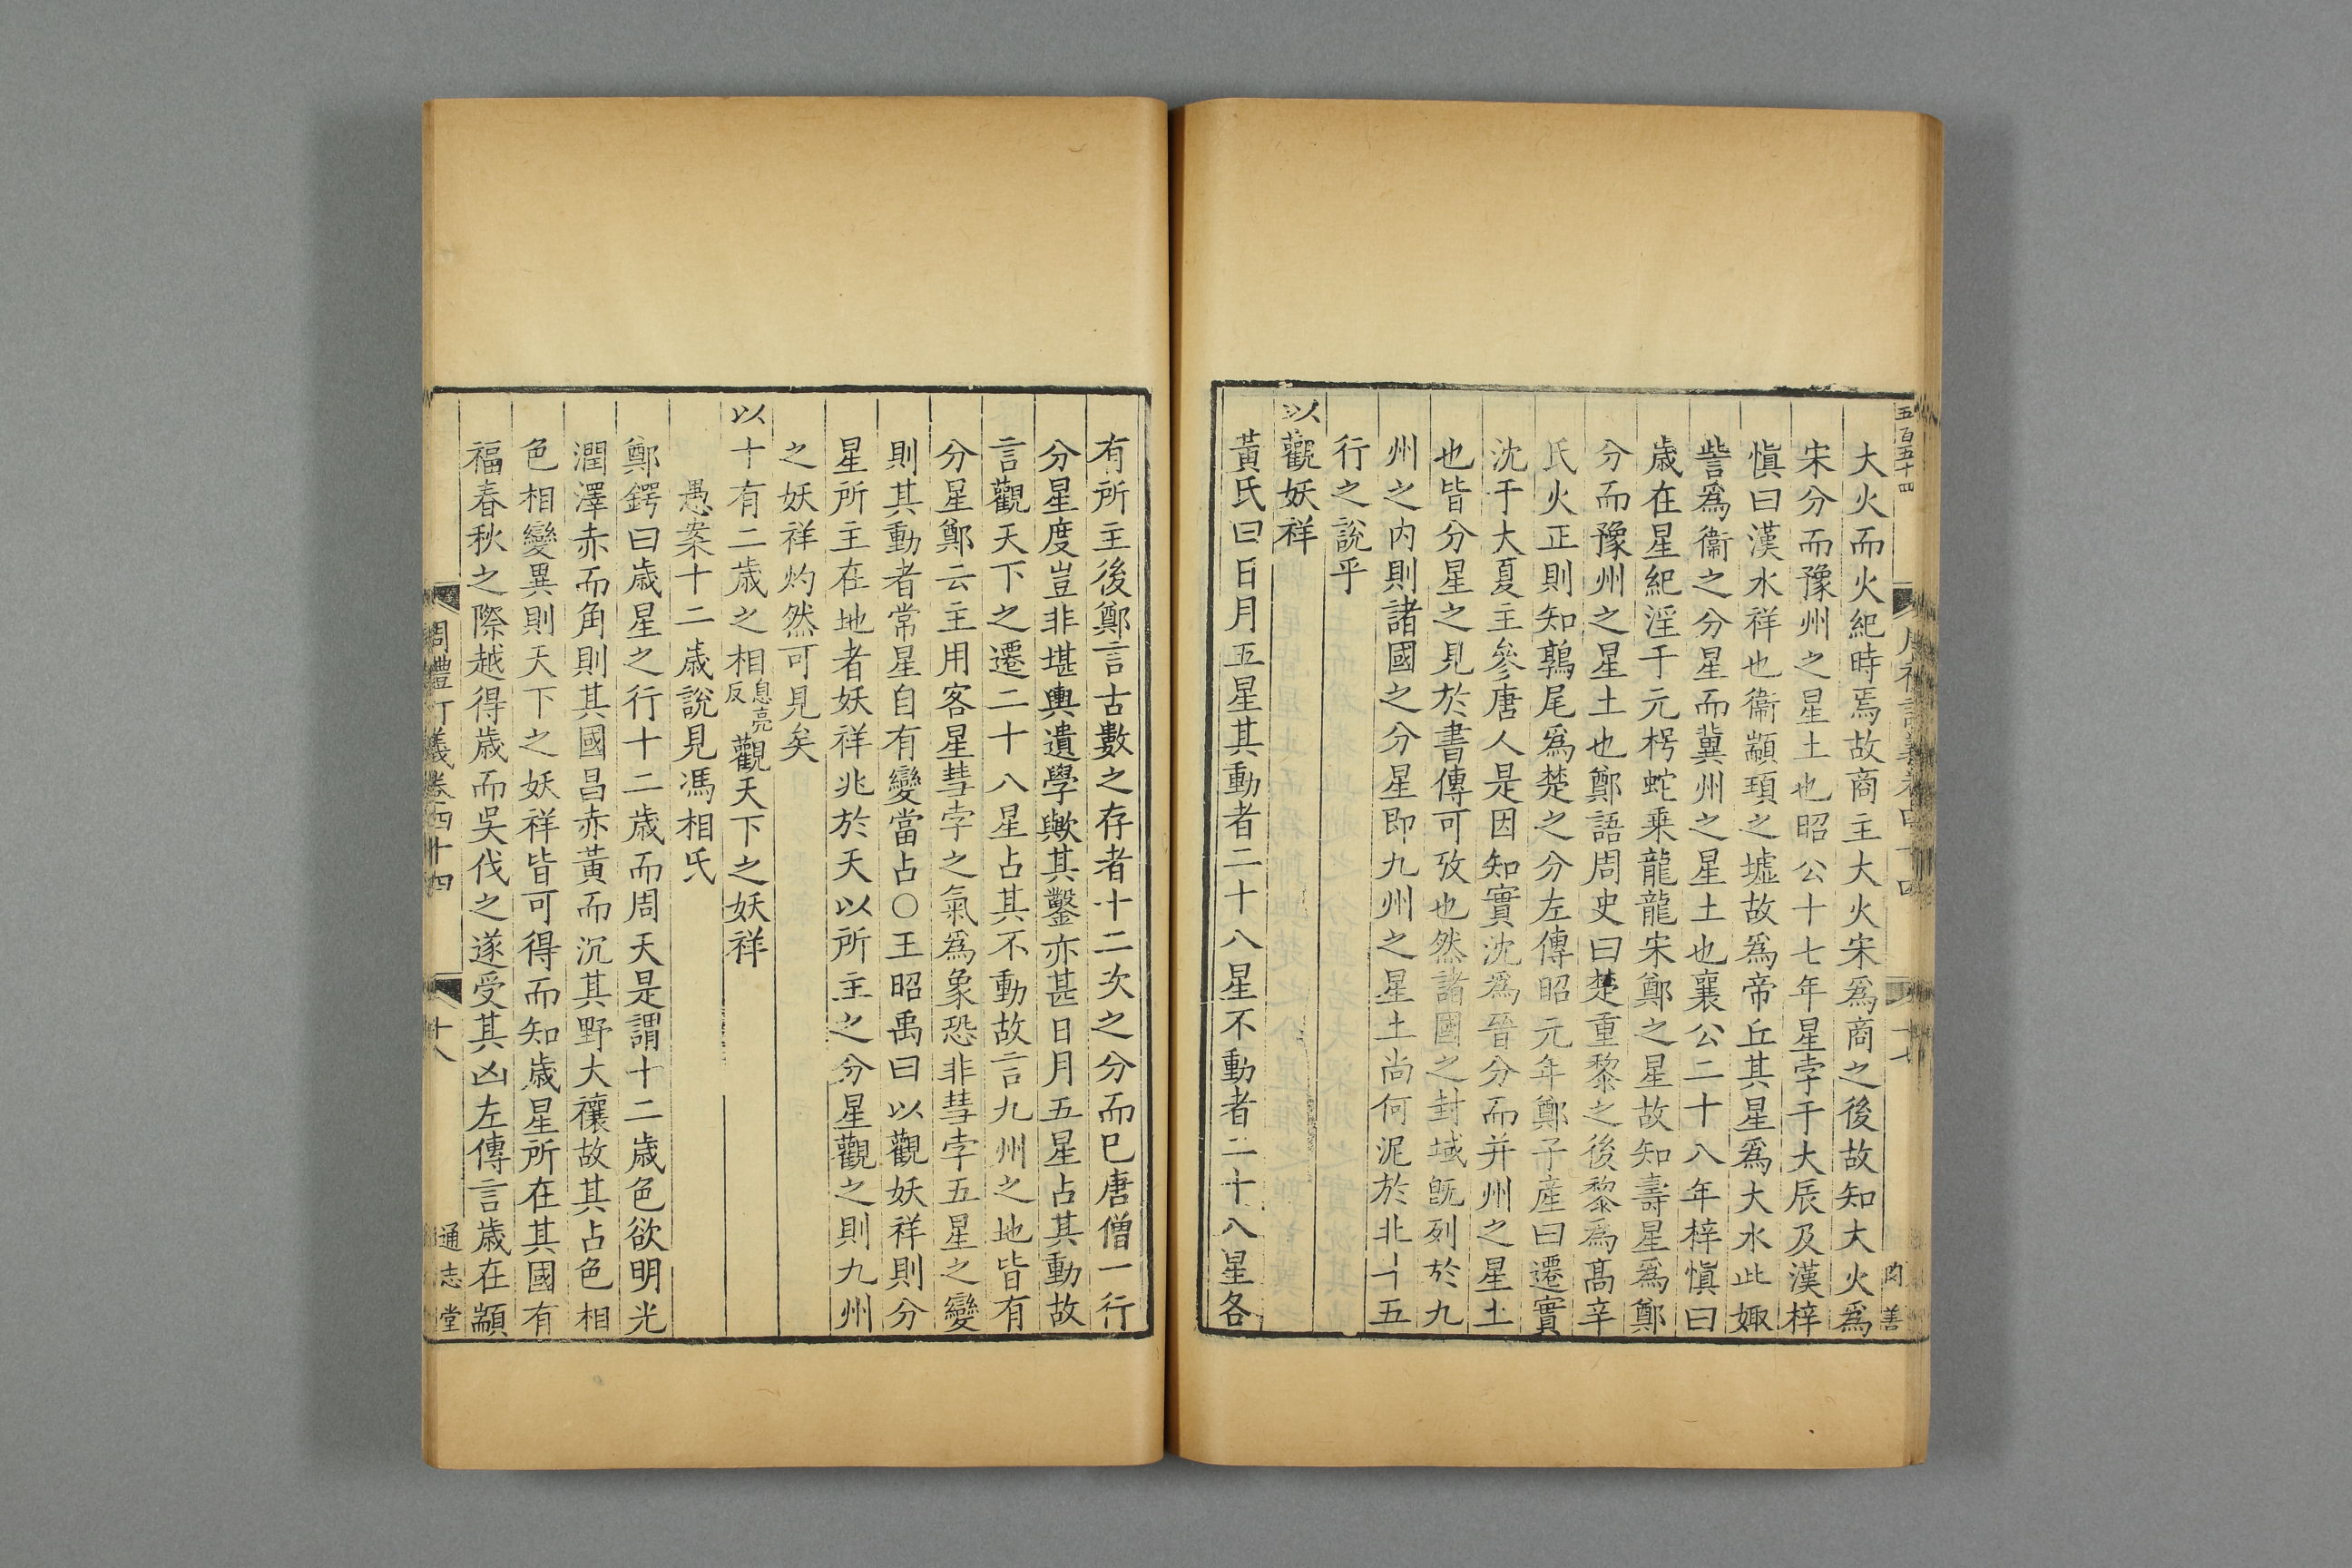 五百五十四
大火而火紀時焉故商主大火宋爲商之後故知大火爲
宋分而豫州之星土也昭公十七年星孛于大辰及漢梓
愼曰漢水祥也衞顓頊之墟故爲帝丘其星爲大水此娵
訾爲衞之分星而冀州之星土也襄公二十八年梓愼曰
歳在星紀淫于元枵蛇乗龍龍宋鄭之星故知壽星爲鄭
分而豫州之星土也鄭語周史曰楚重黎之後黎爲髙辛
氏火正則知鶉尾爲楚之分左傳昭元年鄭子產曰遷實
沈于大夏主參唐人是因知實沈爲晉分而并州之星土
也皆分星之見於書傳可攷也然諸國之封域旣列於九
州之内則諸國之分星即九州之星土尚何泥於北斗五
行之說乎
以觀妖祥
黃氏曰日月五星其動者二十八星不動者二十八星各
有所主後鄭言古數之存者十二次之分而已唐僧一行
分星度豈非堪輿遺學歟其鑿亦甚日月五星占其動故
言觀天下之遷二十八星占其不動故言九州之地皆有
分星鄭云主用客星彗孛之氣爲象恐非彗孛五星之變
則其動者常星自有變當占〇王昭禹曰以觀妖祥則分
星所主在地者妖祥兆於天以所主之分星觀之則九州
之妖祥灼然可見矣
以十有二歳之相息亮反觀天下之妖祥
愚案十二歳說見馮相氏
鄭鍔曰歳星之行十二歳而周天是謂十二歳色欲明光
潤澤赤而角則其國昌赤黃而沉其野大穰故其占色相
色相變異則天下之妖祥皆可得而知歳星所在其國有
福春秋之際越得歳而吳伐之遂受其凶左傳言歳在顓
周禮訂義卷四十四
十八
通志堂